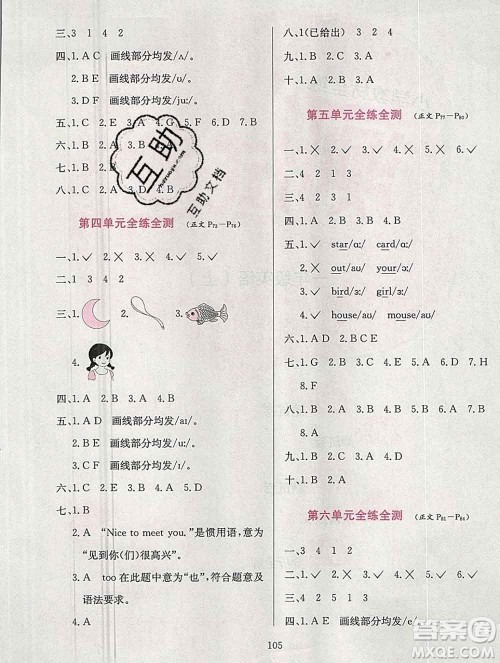 三、3 1 4 2
四、1. A C 画线部分均发/ʌ/。
2. B E 画线部分均发/ʊ/。
3. D F 画线部分均发/juː/。
五、1. C 2. E 3. A 4. G 5. F 6. D 7. B
六、1. A 2. B 3. A 4.
七、1. B 2. A 3. A 4.
八、1. A 2. C 3. D 4. B
第四单元全练全测 (正文 P73－P76)
一、1. ✓ 2. × 3. ✓ 4. ✓ 5. ✓
二、1 3 4 2
三、1. 2. 3.
4.
四、1. B 2. B 3. A 4. B
五、1. A D 画线部分均发/aɪ/。
2. B E 画线部分均发/uː/。
3. C F 画线部分均发/ɪ/。
六、1. C 2. D 3. B 4. A
七、1. B
2. A “Nice to meet you.”是惯用语，意为
“见到你(们)很高兴”。
3. A too 在此题中意为“也”，符合题意及
语法要求。
八、1 (已给出) 4 3 2
九、1. B 2. C 3. A
十、1. A 2. B 3. A
第五单元全练全测 (正文 P77－P80)
一、1. × 2. × 3. ✓ 4. ✓ 5. ×
二、1. ✓ 2. × 3. × 4. ✓ 5. ✓
三、3 2 5 1 4
四、1. A 2. B 3. B 4. B 5. A
五、1. ✓ star/ɑː/ card/ɑː/
2. × out/aʊ/ your/ɔː/
3. ✓ bird/ɜː/ girl/ɜː/
4. ✓ house/aʊ/ mouse/aʊ/
六、1. A D 2. B C E
七、1. G 2. B 3. C 4. E 5. A 6. D 7. H
8. F
八、1. B 2. B 3. A 4. A 5. B 6. A 7. B
8. A
十、1. B 2. A 3. A 4. B
第六单元全练全测 (正文 P81－P84)
一、3 4 1 2
二、1. ✓ 2. × 3. × 4. ✓ 5. ✓
三、4 2 5 1 3
四、1. A E 画线部分均发/e/。
105
互助
互助文档
答案圈
MXQE.COM